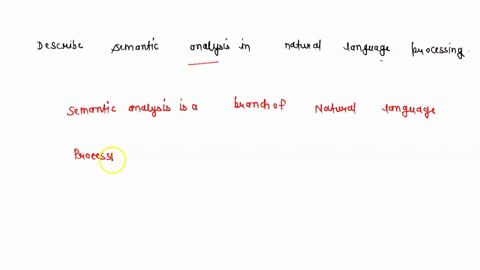 Describe semantic analysis in natural language processing.
Semantic analysis is a branch of Natural language
Process